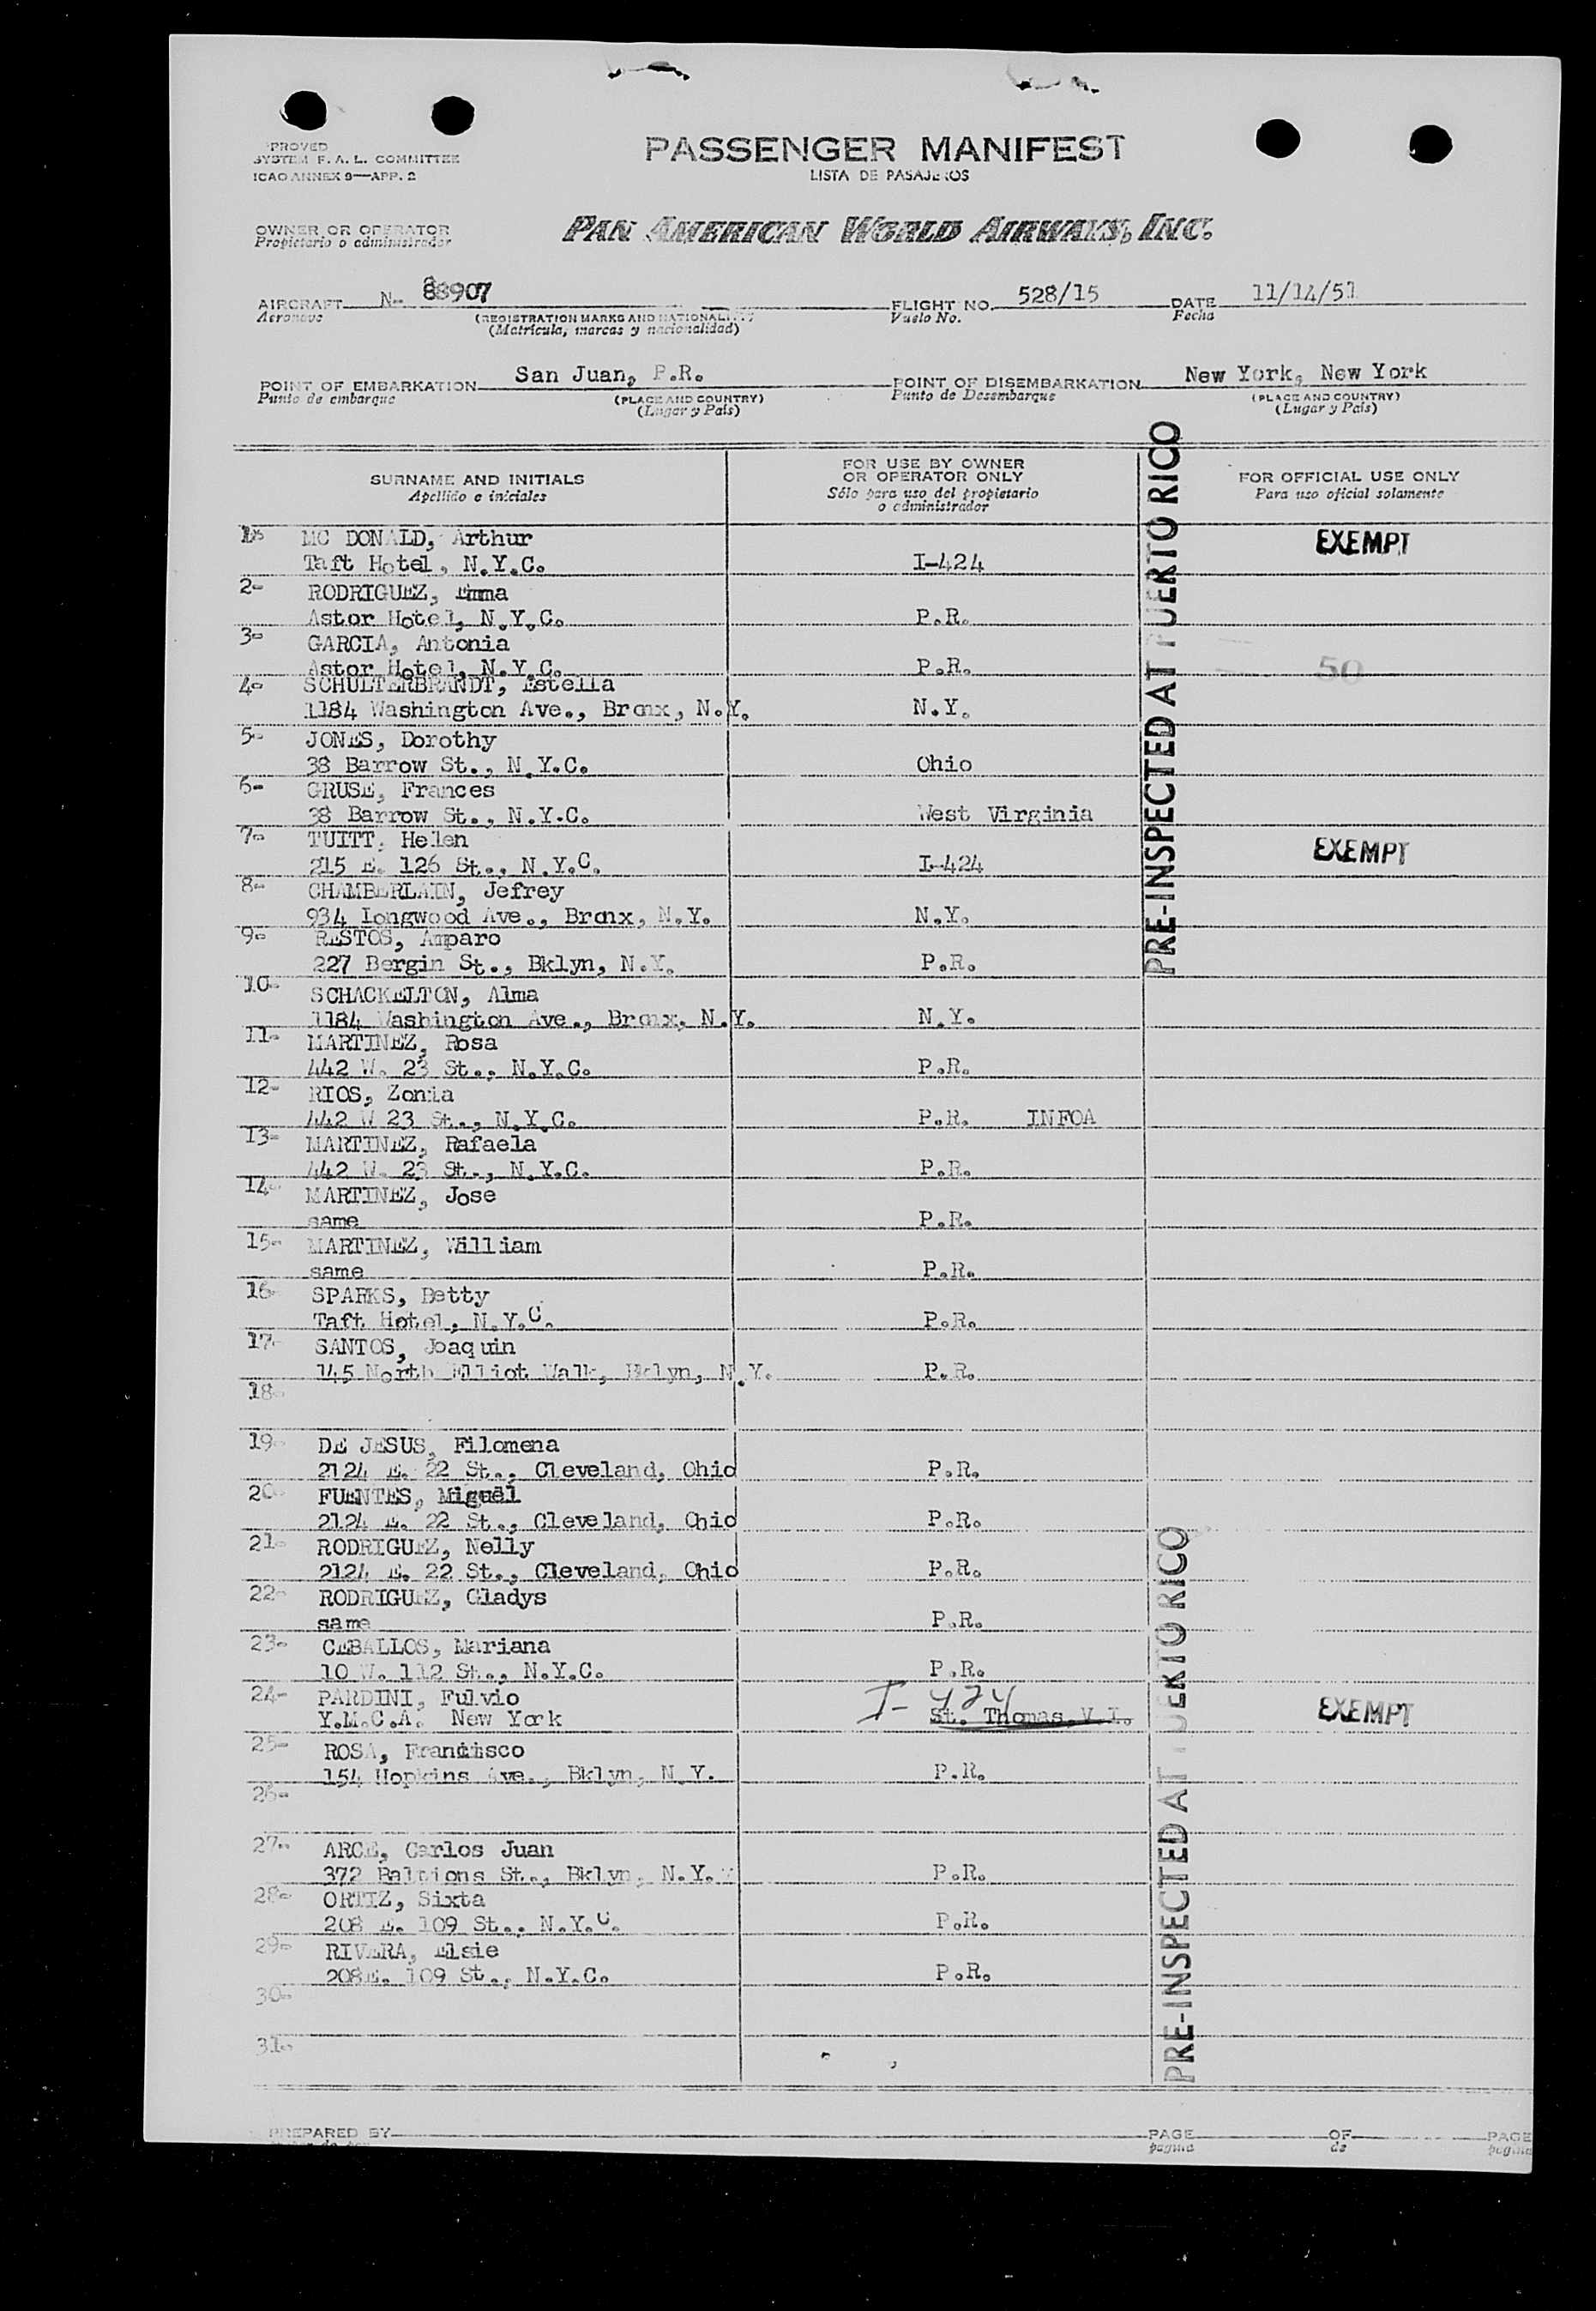 PROVED
SYSTEM F. A. L. COMMITTEE
ICAO ANNEX 9—APP. 2
PASSENGER MANIFEST
LISTA DE PASAJEROS
OWNER OR OPERATOR
Propietario o administrador
PAN AMERICAN WORLD AIRWAYS, INC.
AIRCRAFT N- 88907 FLIGHT NO. 528/15 DATE 11/14/51
Aeronave (REGISTRATION MARKS AND NATIONALITY) Vuelo No. Fecha
(Matrícula, marcas y nacionalidad)
POINT OF EMBARKATION San Juan, P.R. POINT OF DISEMBARKATION New York, New York
Punto de embarque (PLACE AND COUNTRY) Punto de Desembarque (PLACE AND COUNTRY)
(Lugar y País) (Lugar y País)
SURNAME AND INITIALS FOR USE BY OWNER OR OPERATOR ONLY FOR OFFICIAL USE ONLY
Apellido e iniciales Sólo para uso del propietario o administrador Para uso oficial solamente
1- MC DONALD, Arthur EXEMPT
Taft Hotel, N.Y.C. I-424
2- RODRIGUEZ, Emma
Astor Hotel, N.Y.C. P.R.
3- GARCIA, Antonia
Astor Hotel, N.Y.C. P.R. 50
4- SCHULTERBRANDT, Estella
1184 Washington Ave., Bronx, N.Y. N.Y.
5- JONES, Dorothy
38 Barrow St., N.Y.C. Ohio
6- GRUSE, Frances
38 Barrow St., N.Y.C. West Virginia
7- TUITT, Helen EXEMPT
215 E. 126 St., N.Y.C. I-424
8- CHAMBERLAIN, Jefrey
934 Longwood Ave., Bronx, N.Y. N.Y.
9- RESTOS, Amparo
227 Bergin St., Bklyn, N.Y. P.R.
10- SCHACKELTON, Alma
1184 Washington Ave., Bronx, N.Y. N.Y.
11- MARTINEZ, Rosa
442 W. 23 St., N.Y.C. P.R.
12- RIOS, Zonia
442 W 23 St., N.Y.C. P.R. INFOA
13- MARTINEZ, Rafaela
442 W. 23 St., N.Y.C. P.R.
14- MARTINEZ, Jose
same P.R.
15- MARTINEZ, William
same P.R.
16- SPARKS, Betty
Taft Hotel, N.Y.C. P.R.
17- SANTOS, Joaquin
145 North Elliot Walk, Bklyn, N.Y. P.R.
18-
19- DE JESUS, Filomena
2124 E. 22 St., Cleveland, Ohio P.R.
20- FUENTES, Miguel
2124 E. 22 St., Cleveland, Ohio P.R.
21- RODRIGUEZ, Nelly
2124 E. 22 St., Cleveland, Ohio P.R.
22- RODRIGUEZ, Gladys
same P.R.
23- CEBALLOS, Mariana
10 W. 112 St., N.Y.C. P.R.
24- PARDINI, Fulvio I-424 EXEMPT
Y.M.C.A. New York St. Thomas, V.I.
25- ROSA, Francisco
154 Hopkins Ave., Bklyn, N.Y. P.R.
26-
27- ARCE, Carlos Juan
372 St., Bklyn, N.Y. P.R.
28- ORTIZ, Sixta
208 E. 109 St., N.Y.C. P.R.
29- RIVERA, Elsie
208E. 109 St., N.Y.C. P.R.
30-
31-
PRE-INSPECTED AT PUERTO RICO
PRE-INSPECTED AT PUERTO RICO
PREPARED BY PAGE OF PAGE
página de página